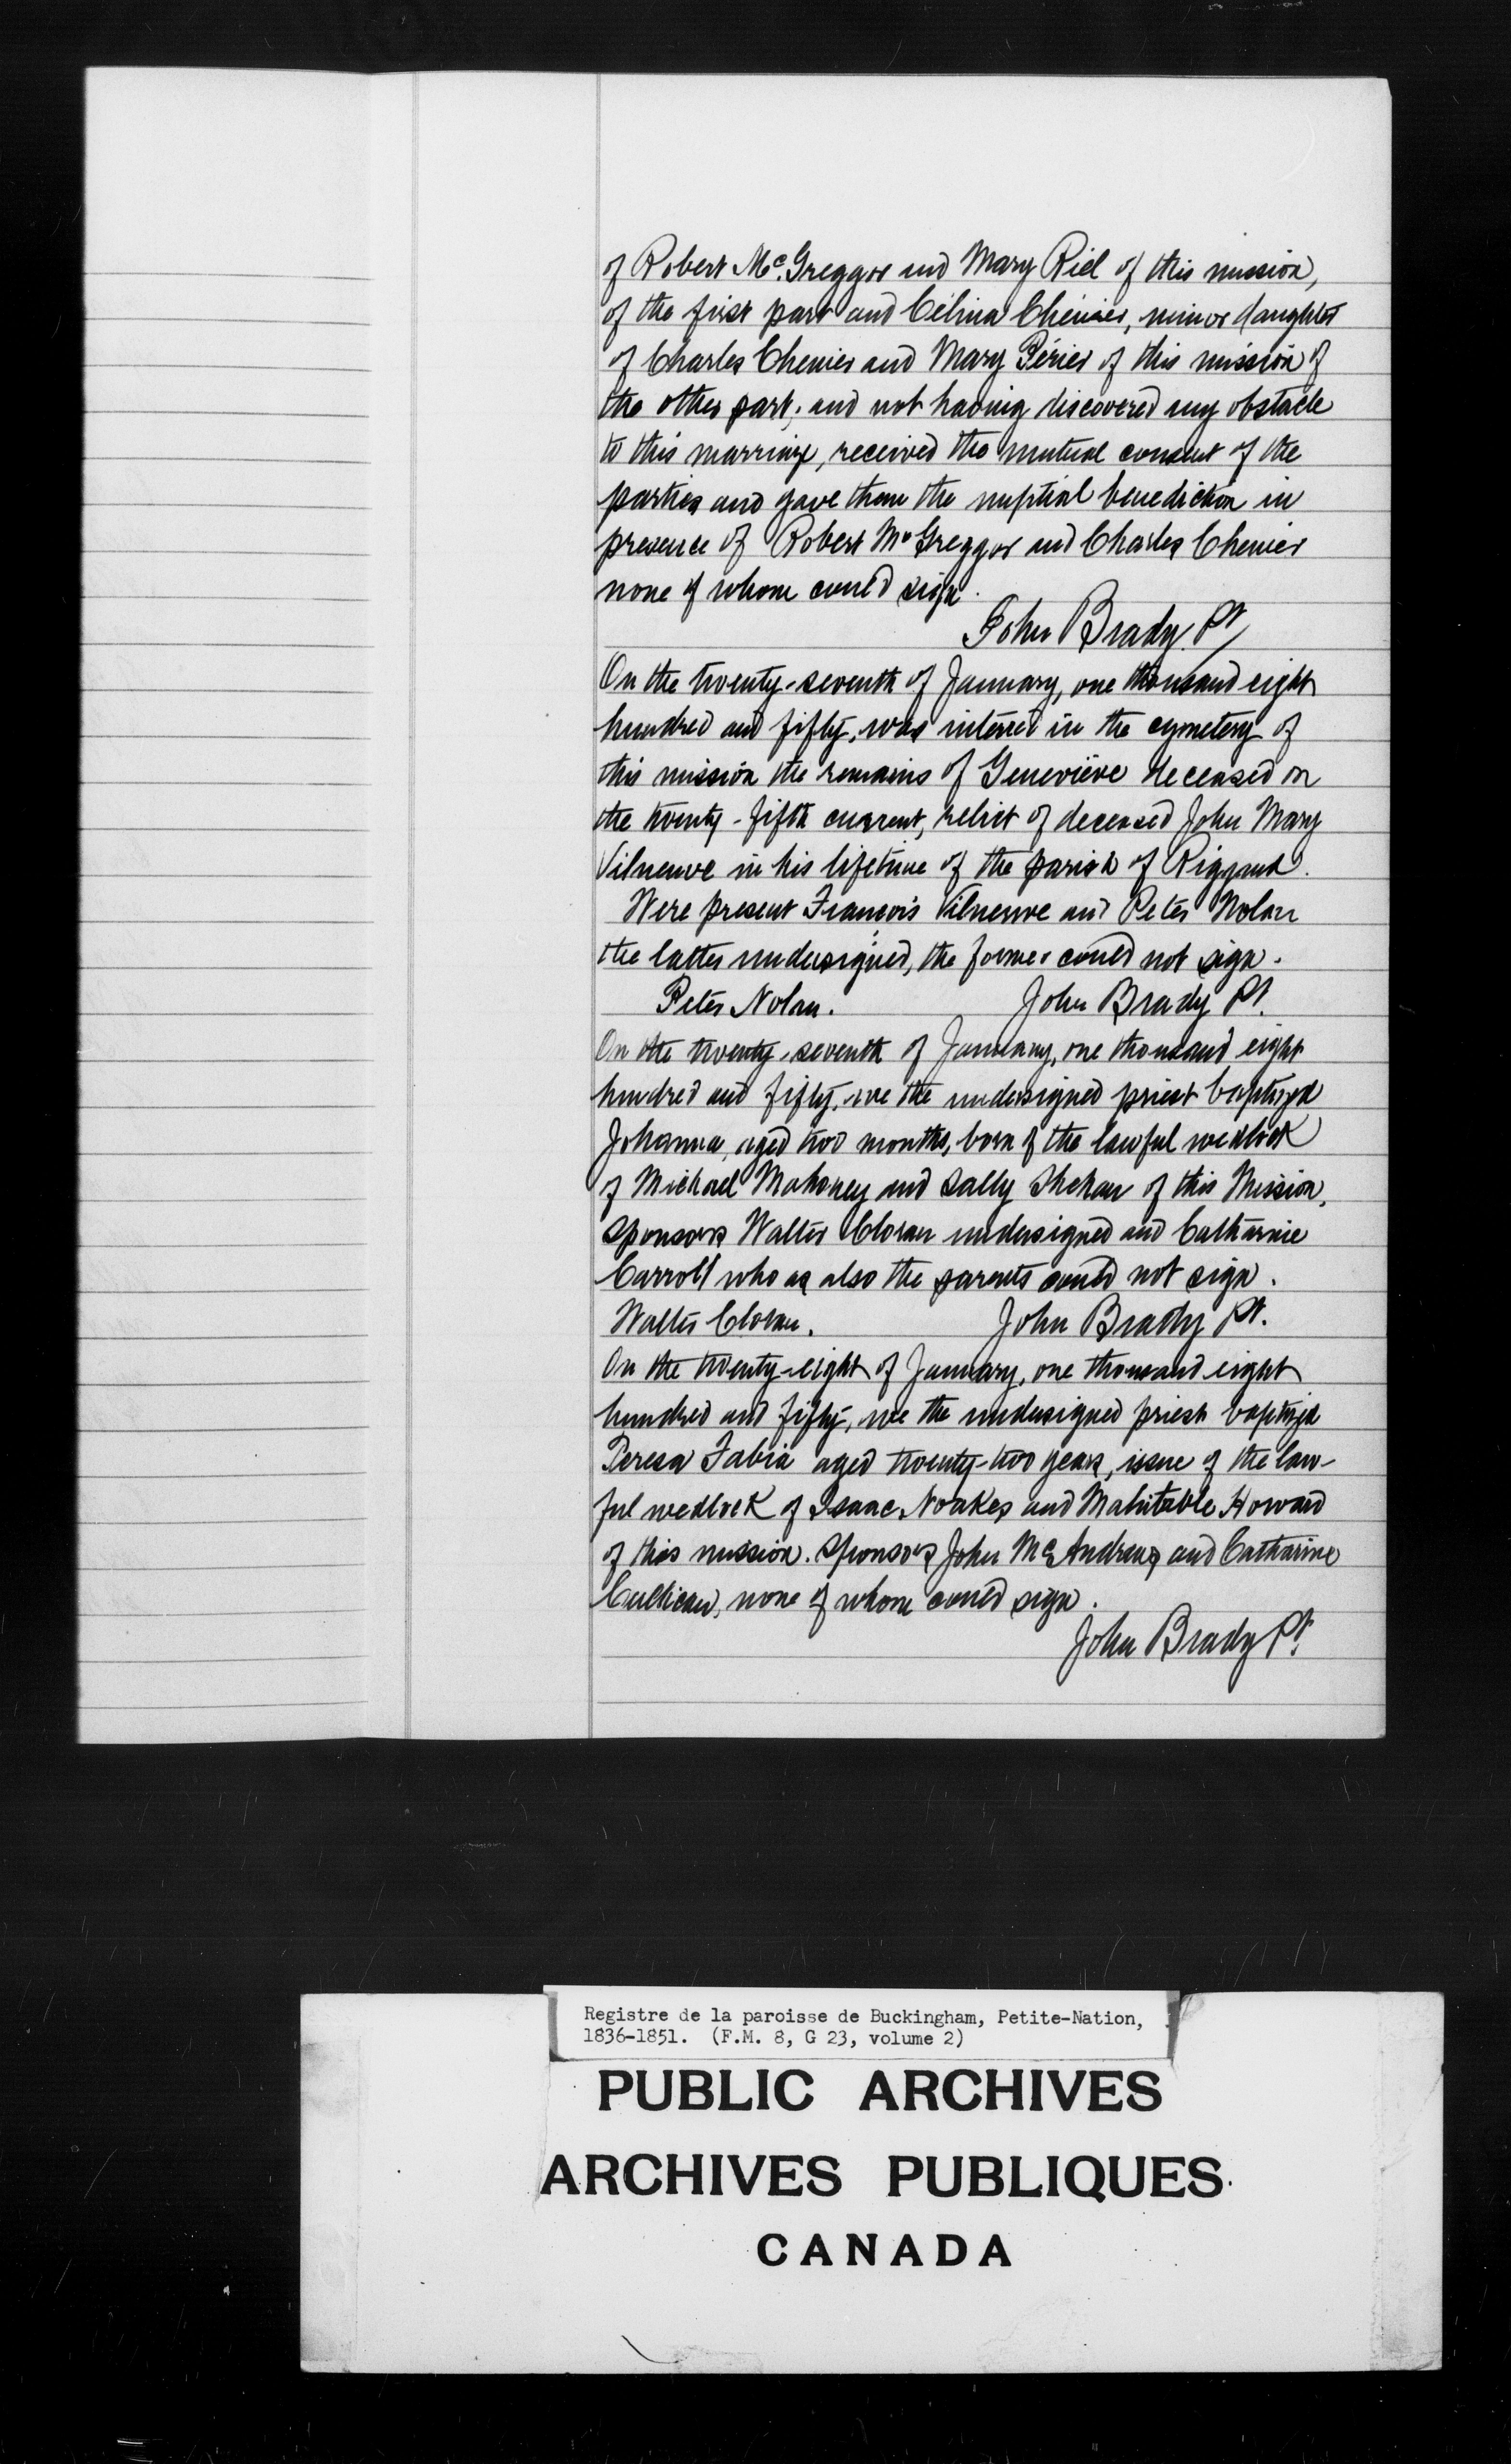 of Robert McGreggor and Mary Riel of this mission,
of the first part and Célina Chénier, minor daughter
of Charles Chenier and Mary Périer of this mission of
the other part; and not having discovered any obstacle
to this marriage, received the mutual consent of the
parties and gave them the nuptial benediction in
presence of Robert McGreggor and Charles Chenier
none of whom could sign.
John Brady Pt
On the twenty-seventh of January, one thousand eight
hundred and fifty, was interred in the cymetery of
this mission the remains of Geneviève deceased on
the twenty-fifth current, relict of deceased John Mary
Vilneuve in his lifetime of the parish of Riggaud.
Were present François Vilneuve and Peter Nolan
the latter undersigned, the former could not sign.
Peter Nolan. John Brady Pt.
On the twenty-seventh of January, one thousand eight
hundred and fifty, we the undersigned priest baptized
Johanna, aged two months, born of the lawful wedlock
of Michael Mahoney and Sally Shehan of this Mission.
Sponsors Walter Cloran undersigned and Catharine
Carroll who as also the parents could not sign.
Walter Cloran. John Brady Pt.
On the twenty-eight of January, one thousand eight
hundred and fifty, we the undersigned priest baptized
Teresa Fabia aged twenty-two years, issue of the law-
ful wedlock of Isaac Noakes and Mahitable Howard
of this mission. Sponsors John McAndrews and Catharine
Cullican, none of whom could sign.
John Brady Pt.
Registre de la paroisse de Buckingham, Petite-Nation,
1836-1851. (F.M. 8, G 23, volume 2)
PUBLIC ARCHIVES
ARCHIVES PUBLIQUES
CANADA